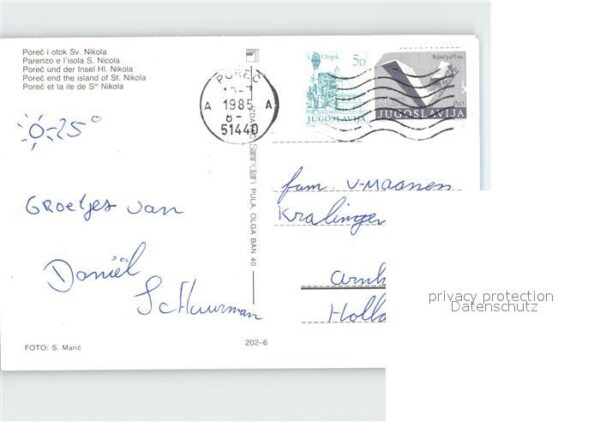 Poreč i otok Sv. Nikola
Parenzo e l'isola S. Nicola
Poreč und der Insel Hl. Nikola
Poreč end the island of St. Nikola
Poreč et la ile de Ste Nikola
POREČ
A 1985 A
51440
Osijek 50
JUGOSLAVIJA
Kragujevac
JUGOSLAVIJA
0-25°
Groetjes van
Daniël
Schuurman
PULA, OLGA BAN 40
fam v-maanen
Kralinger
arnh
Holla
privacy protection
Datenschutz
FOTO: S. Marić
202-6